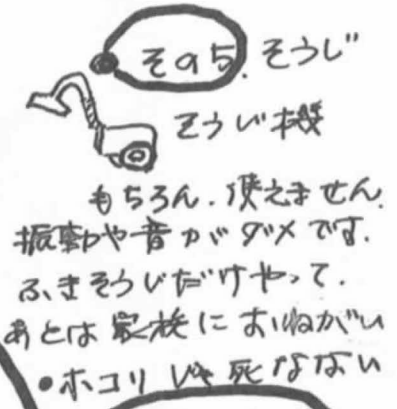 その5. そうじ
そうじ機
もちろん.使えません.
振動や音がダメです.
ふきそうじだけやって.
あとは家族におねがい
•ホコリじゃ死なない